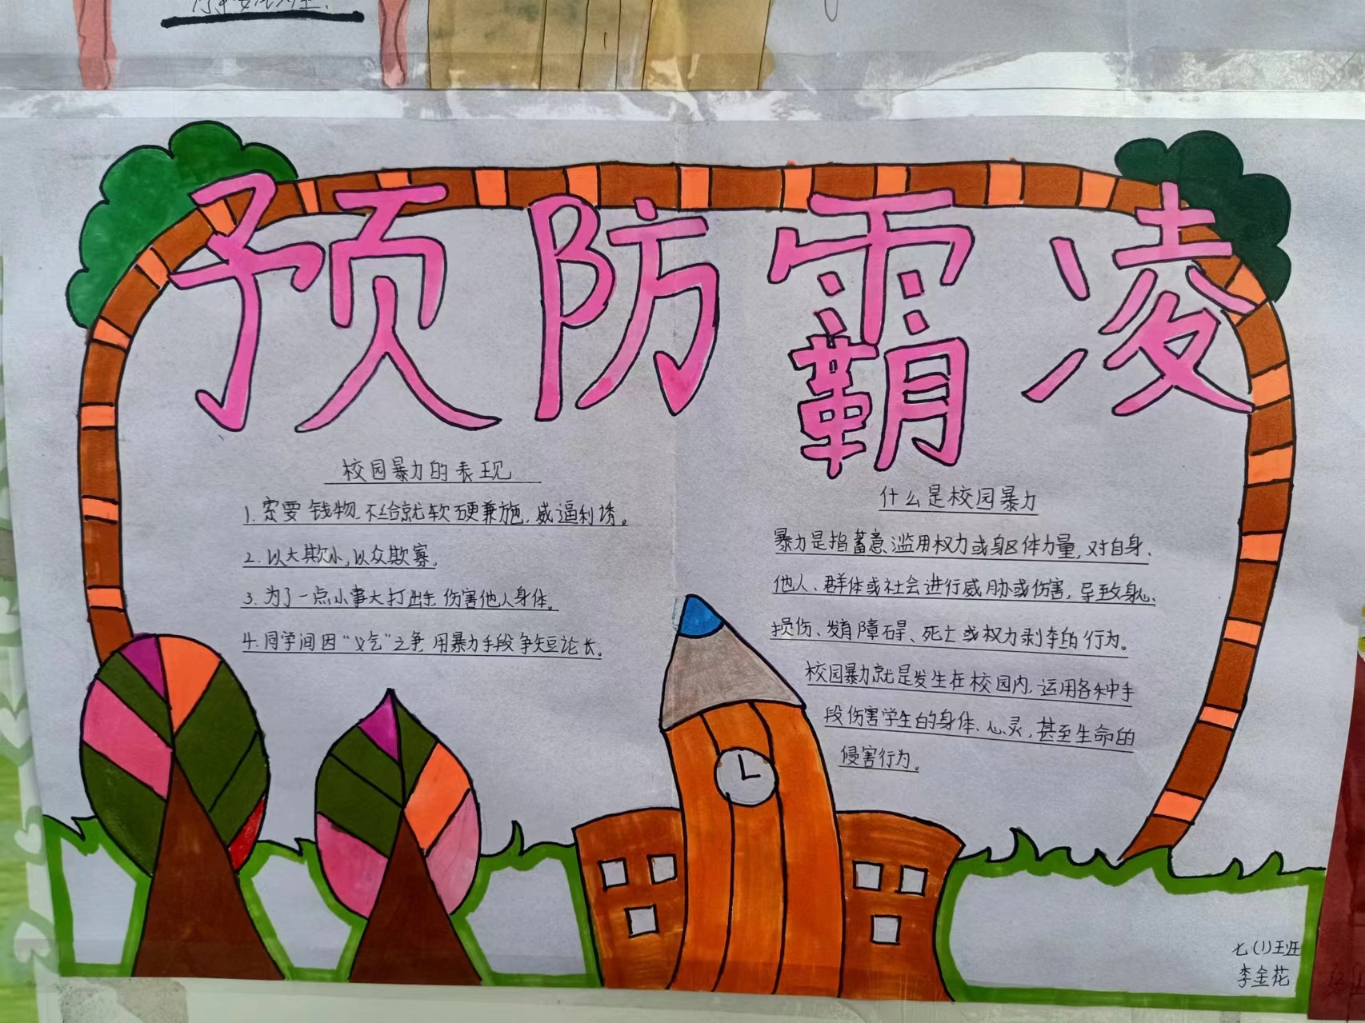 预防霸凌
校园暴力的表现
1.索要钱物,不给就软硬兼施,威逼利诱。
2.以大欺小,以众欺寡。
3.为了一点小事大打出手伤害他人身体。
4.同学间因“义气”之争用暴力手段争短论长。
什么是校园暴力
暴力是指蓄意滥用权力或躯体力量,对自身、
他人、群体或社会进行威胁或伤害,导致身心
损伤、发育障碍、死亡或权力剥夺的行为。
校园暴力就是发生在校园内,运用各种手
段伤害学生的身体、心灵,甚至生命的
侵害行为。
七(1)班
李金花